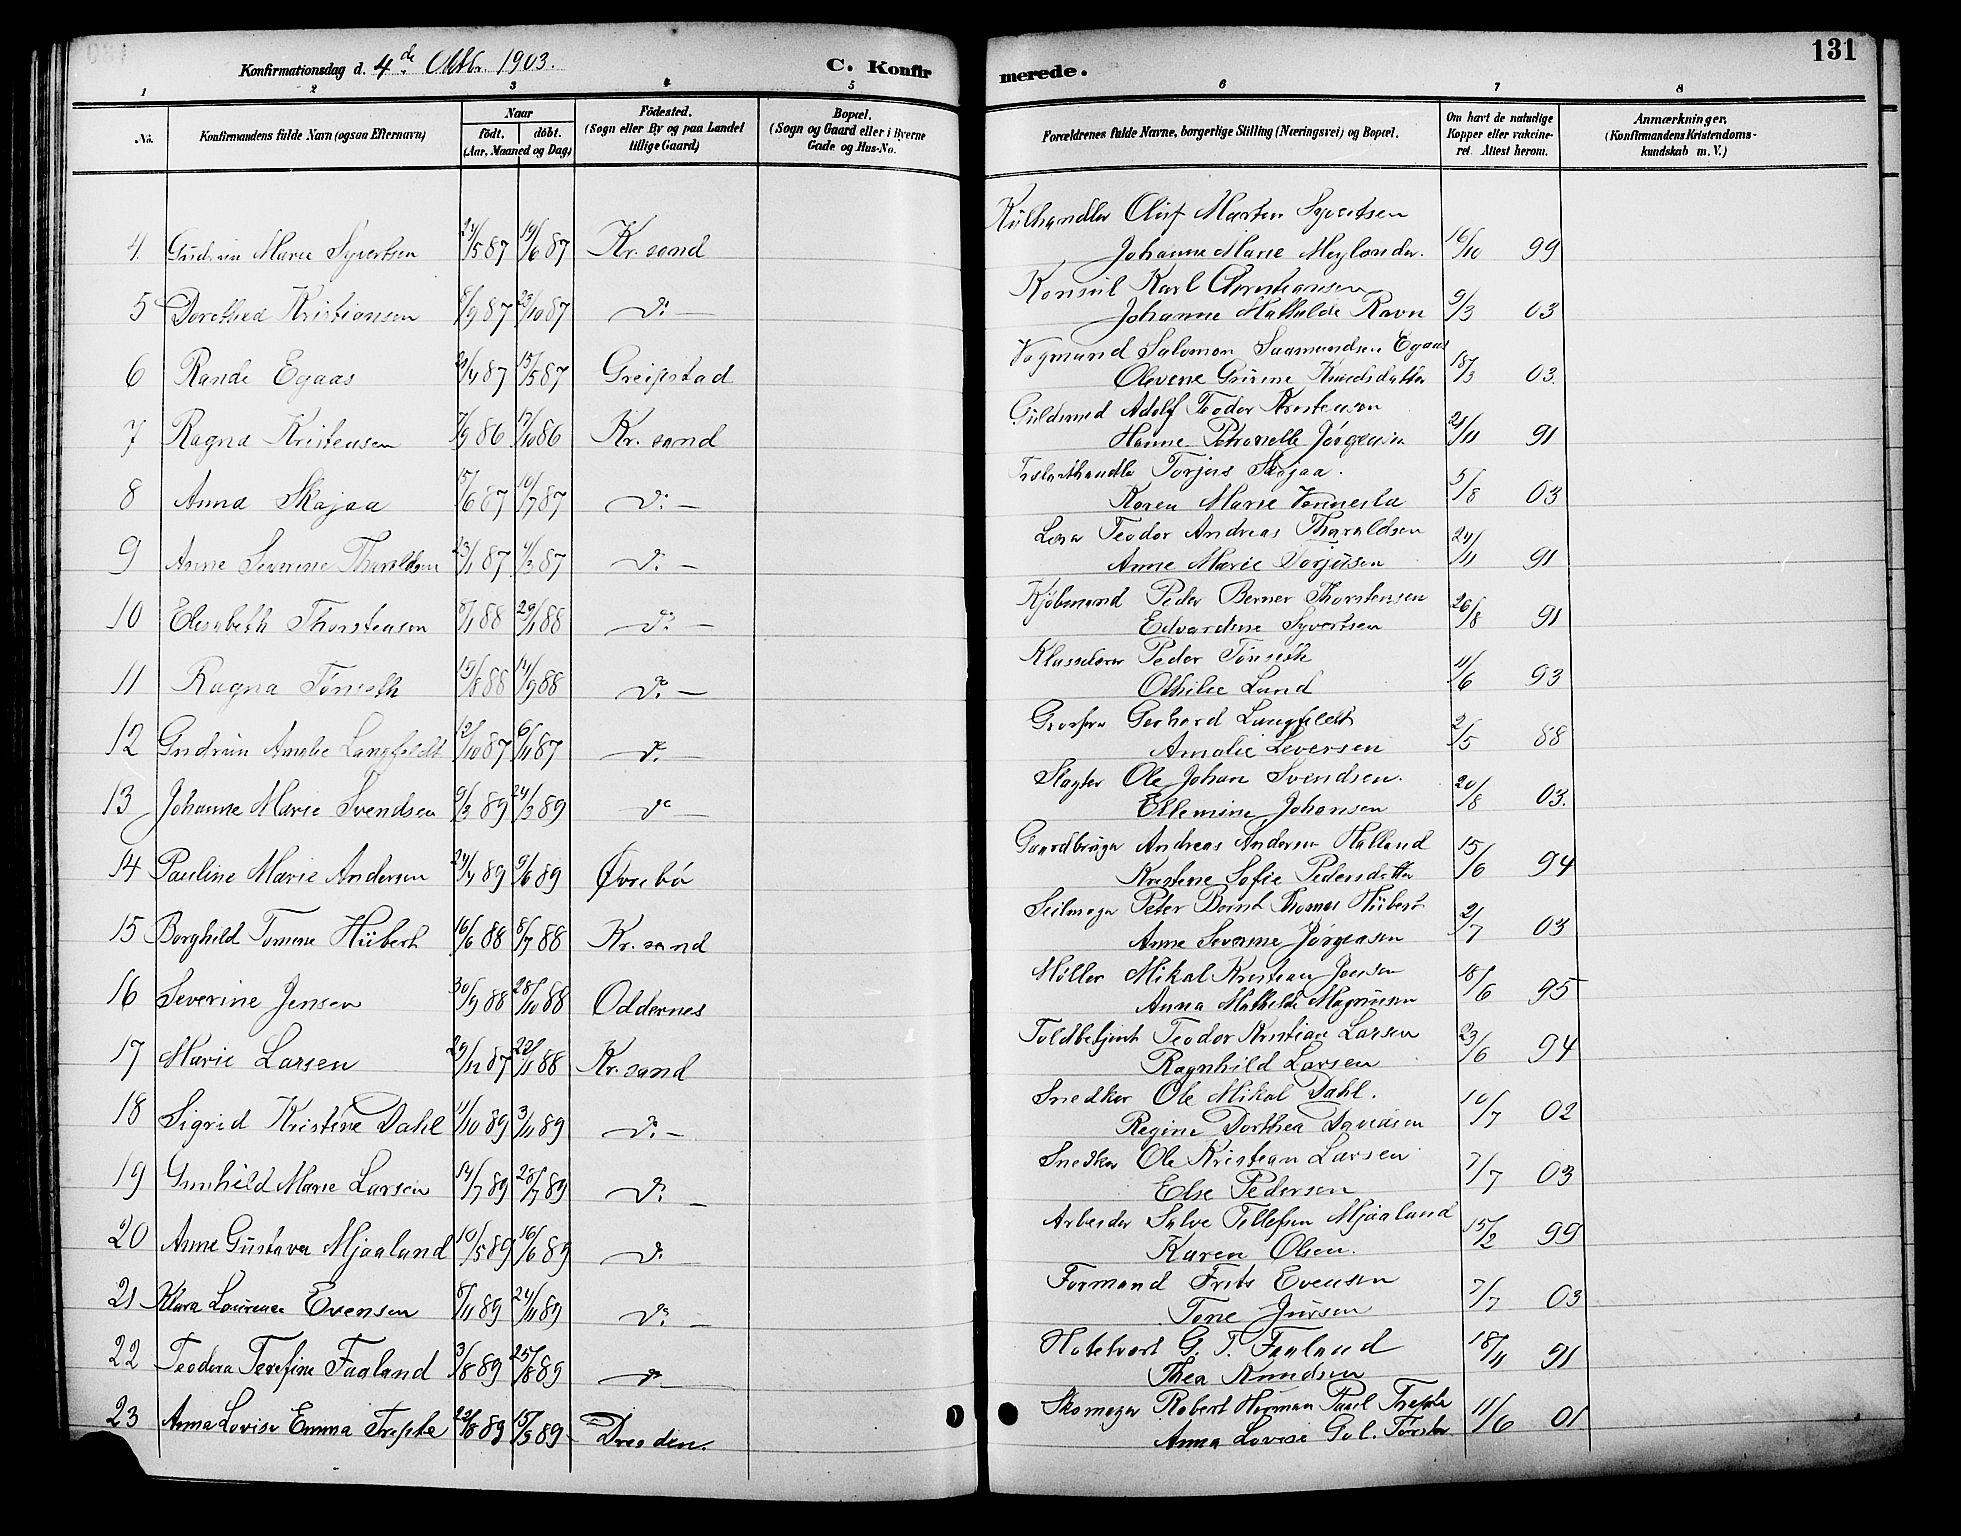 Konfirmationsdag d. 4de Oktbr. 1903. C. Konfirmerede. 131
1 2 3 4 5 6 7 8
No. Konfirmandens fulde Navn (ogsaa Efternavn) Naar født. døbt. (Aar, Maaned og Dag) Fødested. (Sogn eller By og paa Landet tillige Gaard) Bopæl. (Sogn og Gaard eller i Byerne Gade og Hus-No. Forældrenes fulde Navne, borgerlige Stilling (Næringsvei) og Bopæl. Om havt de naturlige Kopper eller vakcineret. Attest herom. Anmærkninger. (Konfirmandens Kristendomskundskab m. V.)
Olaf Marten Syvertsen
4. Gudrun Marie Syvertsen 24/5 87 19/6 87 Kr.sand Johanne Marie Meylænder. 16/10 99
Konsul Karl Christiansen
5 Dorethea Kristiansen 8/9 87 23/10 87 do — Johanne Mathilde Ravn 9/3 03
Vogmand Salomon Saamundsen Egaas
6 Rande Egaas 29/4 87 15/5 87 Greipstad Olevene Gurine Knudsdatter 18/3 03.
Guldsmed Adolf Teodor Kristensen
7 Ragna Kristensen 7/9 86 17/10 86 Kr.sand Hanne Petronelle Jørgensen 21/11 91
Torjus Skajaa.
8 Anna Skajaa 15/6 87 10/7 87 do — Karen Marie Vennesla 5/8 03
Teodor Andreas Tharaldsen
9 Anne Severine Tharaldsen 23/1 87 4/3 87 do — Anne Marie Torjusen 24/11 91
Kjøbmand Peder Berner Thorstensen
10 Elisabeth Thorstensen 8/1 88 29/1 88 do — Edvardine Syvertsen 26/8 91
Klasselærer Peder Tønseth
11 Ragna Tønseth 19/8 88 14/9 88 do — Othilie Lund 11/6 93
Gerhard Langfeldt
12 Gudrun Amalie Langfeldt 12/10 87 6/11 87 do — Amalie Seversen 2/5 88
Slagter Ole Johan Svendsen.
13 Johanne Marie Svendsen 9/3 89 24/3 89 do — Ellemine Johansen 20/8 03.
Gaardbruger Andreas Andersen Halland
14 Pauline Marie Andersen 24/4 89 9/6 89 Øvrebø Kristine Sofie Pedersdatter 15/6 94
Seilmager Peter Bernt Thomas Hübert
15 Borghild Tomine Hübert 16/6 88 8/7 88 Kr.sand Anne Severine Jørgensen 2/7 03
Møller Mikal Kristian Jensen
16 Severine Jensen 30/9 88 28/10 88 Oddernes Anna Mathilde Magnusen 18/6 95
Toldbetjent Teodor Kristian Larsen
17 Marie Larsen 29/12 87 22/1 88 Kr.sand Ragnhild Larsen 23/6 94
Snedker Ole Mikal Dahl.
18 Sigrid Kristine Dahl 11/10 89 3/11 89 do — Regine Dorthea Davidsen 10/7 02
Snedker Ole Kristian Larsen
19 Gunhild Marie Larsen 14/7 89 28/7 89 do — Else Pedersen 7/7 03
Arbeider Salve Tellefsen Mjaaland
20 Anne Gustava Mjaaland 10/5 89 16/6 89 do — Karen Olsen. 15/2 99
Formand Frits Evensen
21 Klara Laurense Evensen 8/11 89 24/11 89 do — Tone Jursen 7/7 03
Hotelvert G. T. Faaland
22 Teodora Terefine Faaland 3/8 89 25/8 89 do — Thea Knudsen 18/11 91
Skomager Robert Herman Paul Trepte
23 Anna Lovise Emma Trepte 22/8 89 15/9 89 Dresden. Anna Lovise Gul. Førster 11/6 01